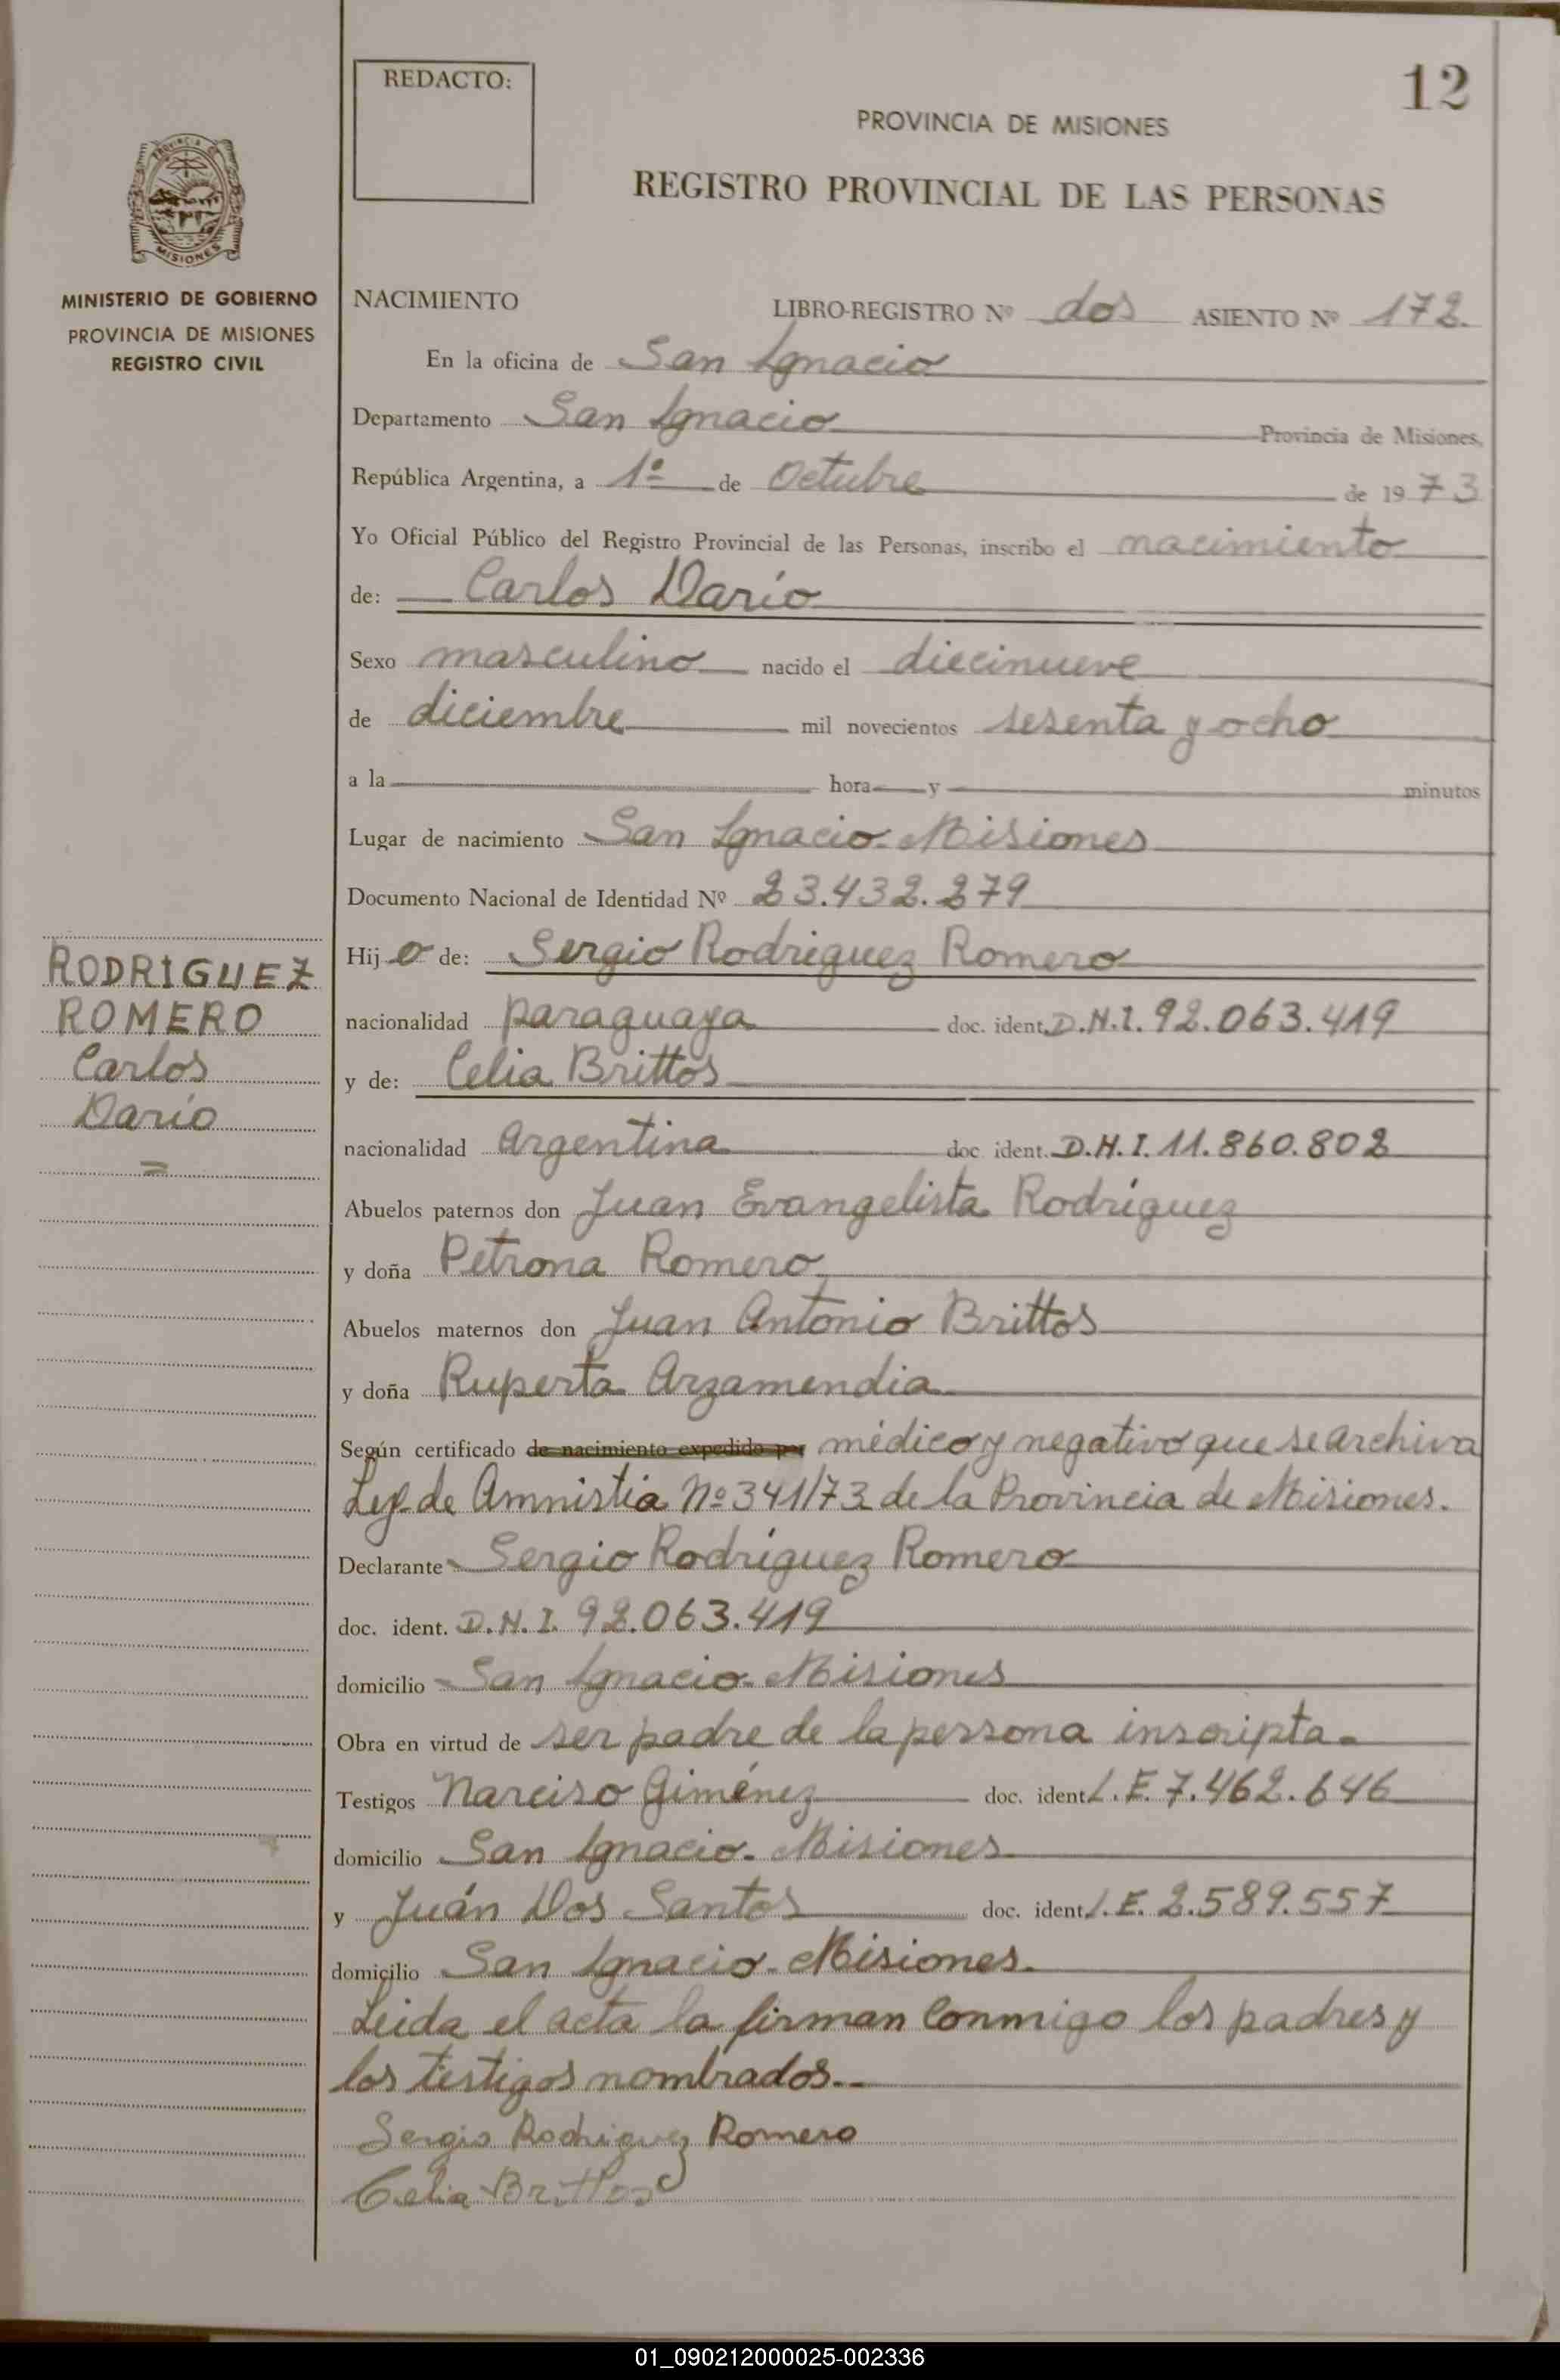 REDACTO:
12
PROVINCIA DE MISIONES
REGISTRO PROVINCIAL DE LAS PERSONAS
PROVINCIA DE
MISIONES
MINISTERIO DE GOBIERNO
PROVINCIA DE MISIONES
REGISTRO CIVIL
NACIMIENTO LIBRO-REGISTRO Nº dos ASIENTO Nº 172.
En la oficina de San Ignacio
Departamento San Ignacio Provincia de Misiones,
República Argentina, a 1º de Octubre de 1973
Yo Oficial Público del Registro Provincial de las Personas, inscribo el nacimiento
de: Carlos Darío
Sexo masculino nacido el diecinueve
de diciembre mil novecientos sesenta y ocho
a la hora y minutos
Lugar de nacimiento San Ignacio - Misiones
Documento Nacional de Identidad Nº 23.432.279
RODRIGUEZ
ROMERO
Carlos
Darío
=
Hijo de: Sergio Rodriguez Romero
nacionalidad paraguaya doc. ident. D.N.I. 92.063.419
y de: Celia Brittos
nacionalidad Argentina doc. ident. D.N.I. 11.860.802
Abuelos paternos don Juan Evangelista Rodríguez
y doña Petrona Romero
Abuelos maternos don Juan Antonio Brittos
y doña Ruperta Arzamendia
Según certificado de nacimiento expedido por médico y negativo que se archiva
Ley de Amnistia Nº 341/73 de la Provincia de Misiones.
Declarante Sergio Rodríguez Romero
doc. ident. D.N.I. 92.063.419
domicilio San Ignacio - Misiones
Obra en virtud de ser padre de la persona inscripta.
Testigos Narciso Giménez doc. ident L.E. 7.462.646
domicilio San Ignacio - Misiones
y Juán Dos Santos doc. ident L.E. 2.589.557
domicilio San Ignacio - Misiones.
Leida el acta la firman conmigo los padres y
los testigos nombrados.--
Sergio Rodriguez Romero
Celia Brittos
01_090212000025-002336